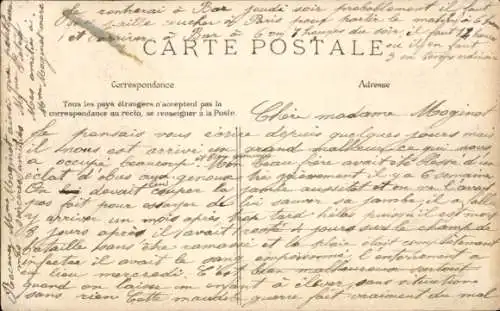 Je rentrerai à Bar jeudi soir probablement il faut
aille coucher à Paris pour partir le matin à 6
et arriver à Bar à 6 ou 7 heures du soir, il faut 12 heures
ou il en faut
3 en temps ordinaire
CARTE POSTALE
Correspondance
Adresse
Tous les pays étrangers n'acceptent pas la
correspondance au recto, se renseigner à la Poste.
Chère madame Maginot
Je pensais vous écrire depuis quelques jours mais
il nous est arrivé un grand malheur ce qui nous
a occupé beaucoup. Mon beau frère avait été blessé d'un
éclat d'obus au genou très grièvement il y a 6 semaines
On devait couper la jambe aussitôt et on ne l'avait
pas fait pour essayer de lui sauver sa jambe, il a fallu
y arriver un mois après trop tard hélas puisqu'il est mort
3 jours après il avait resté 4 jours sur le champ de
bataille sans être ramassé et la plaie était complètement
infectée il avait le sang empoisonné l'enterrement a
eu lieu mercredi. C'est bien malheureux surtout
quand on laisse un enfant à élever sans situation
sans rien Cette maudite guerre fait vraiment du mal